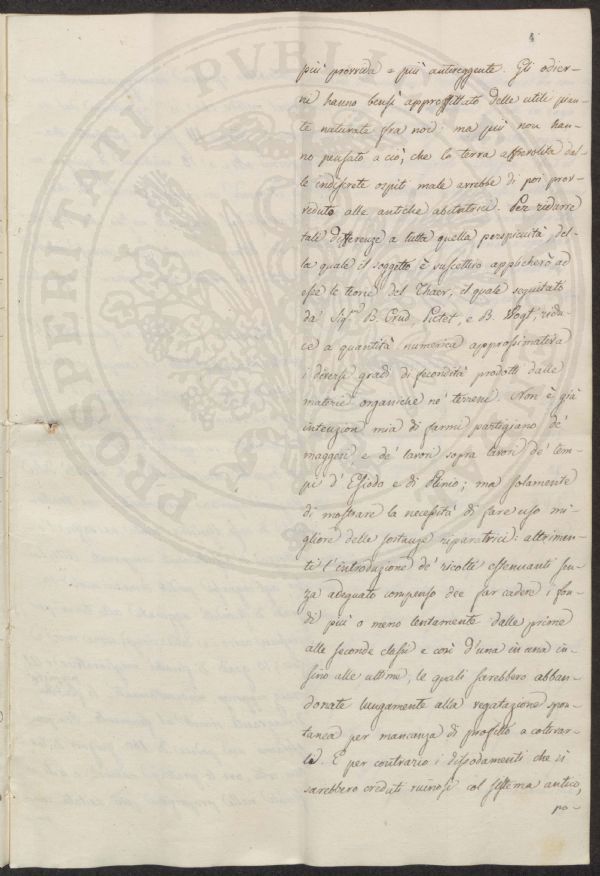 4
più provvida e più antiveggente. Gli odier-
ni hanno bensì approffittato delle utili pian-
te naturate fra noi: ma più non han-
no pensato a ciò, che la terra affievolita dal-
le indiscrete ospiti male avrebbe di poi prov-
veduto alle antiche abitatrici. Per ridurre
tali differenze a tutta quella perspicuità del-
la quale il soggetto è suscettivo applicherò ad
esse le teorie del Thaer, il quale seguitato
da' Sig.ri B. Crud, Pictet, e B. Vogt, ridu-
ce a quantità numerica approssimativa
i diversi gradi di fecondità prodotti dalle
materie organiche ne' terreni. Non è già
intenzion mia di farmi partigiano de'
maggesi, e de' lavori sopra lavori de' tem-
pi d'Esiodo e di Plinio; ma solamente
di mostrare la necessità di fare uso mi-
gliore delle sostanze riparatrici: altrimen-
ti l'introduzione de' ricolti estenuanti sen-
za adeguato compenso dee far cadere i fon-
di più o meno lentamente dalle prime
alle seconde classi e così d'una in una in-
sino alle ultime, le quali sarebbero abban-
donate lungamente alla vegatazione spon-
tanea per mancanza di profitto a coltivar-
la. E per contrario i dissodamenti che si
sarebbero creduti ruinosi col sistema antico,
po-
PROSPERITATI PVBLICAE